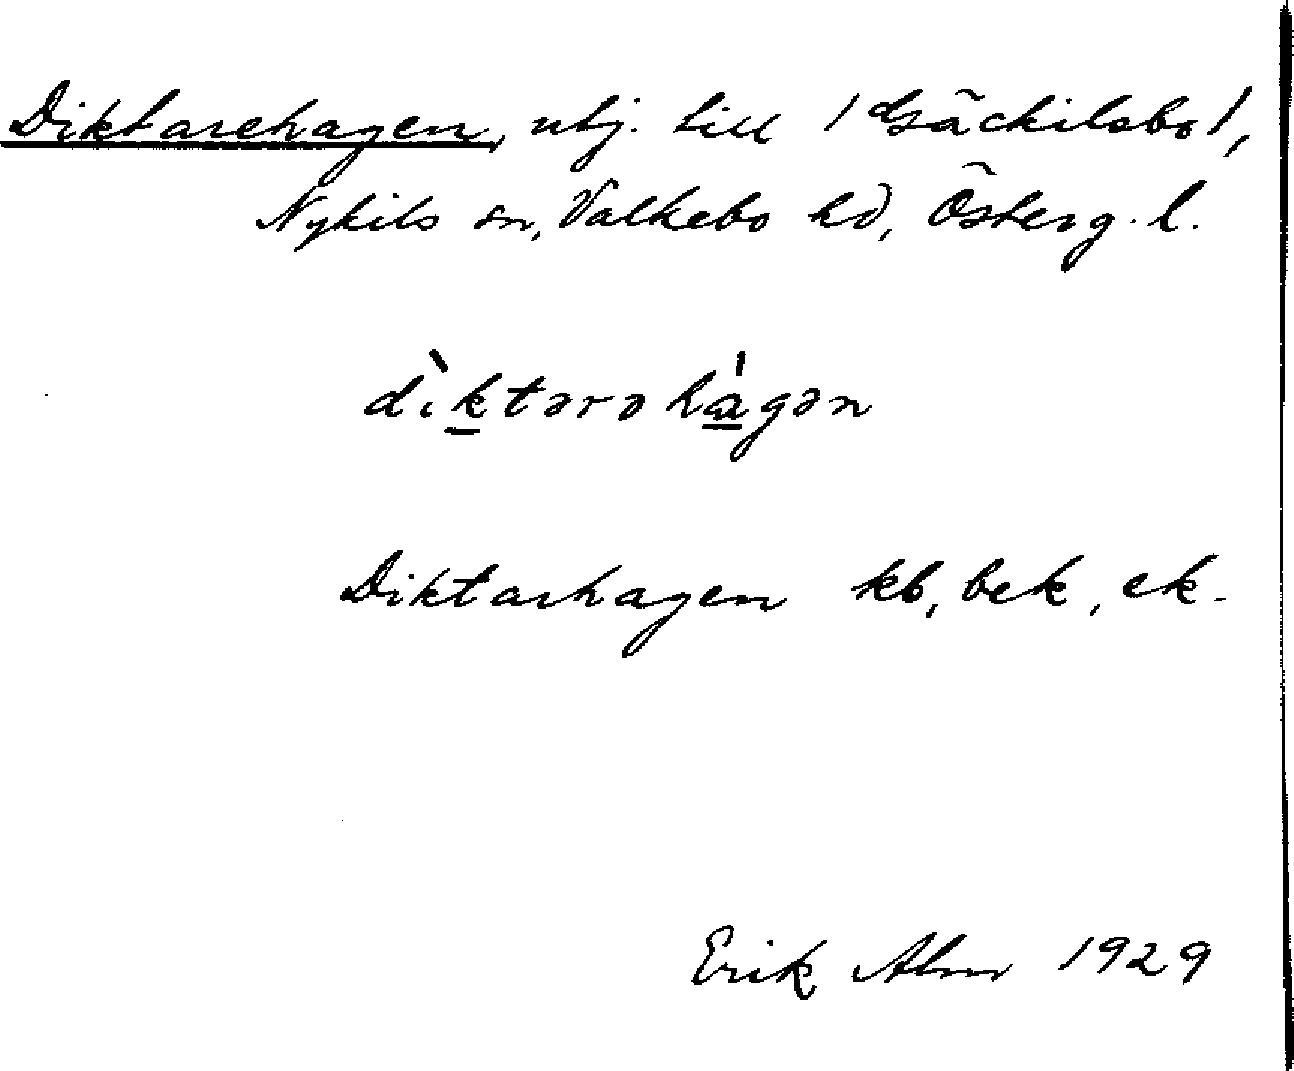 Diktarehagen, utj. till / Gäckilsbo /,
Nykils sn, Valkebo hd, Österg. l.
dìktərəhágən
Diktarhagen kb, bek, ek.
Erik Alm 1929